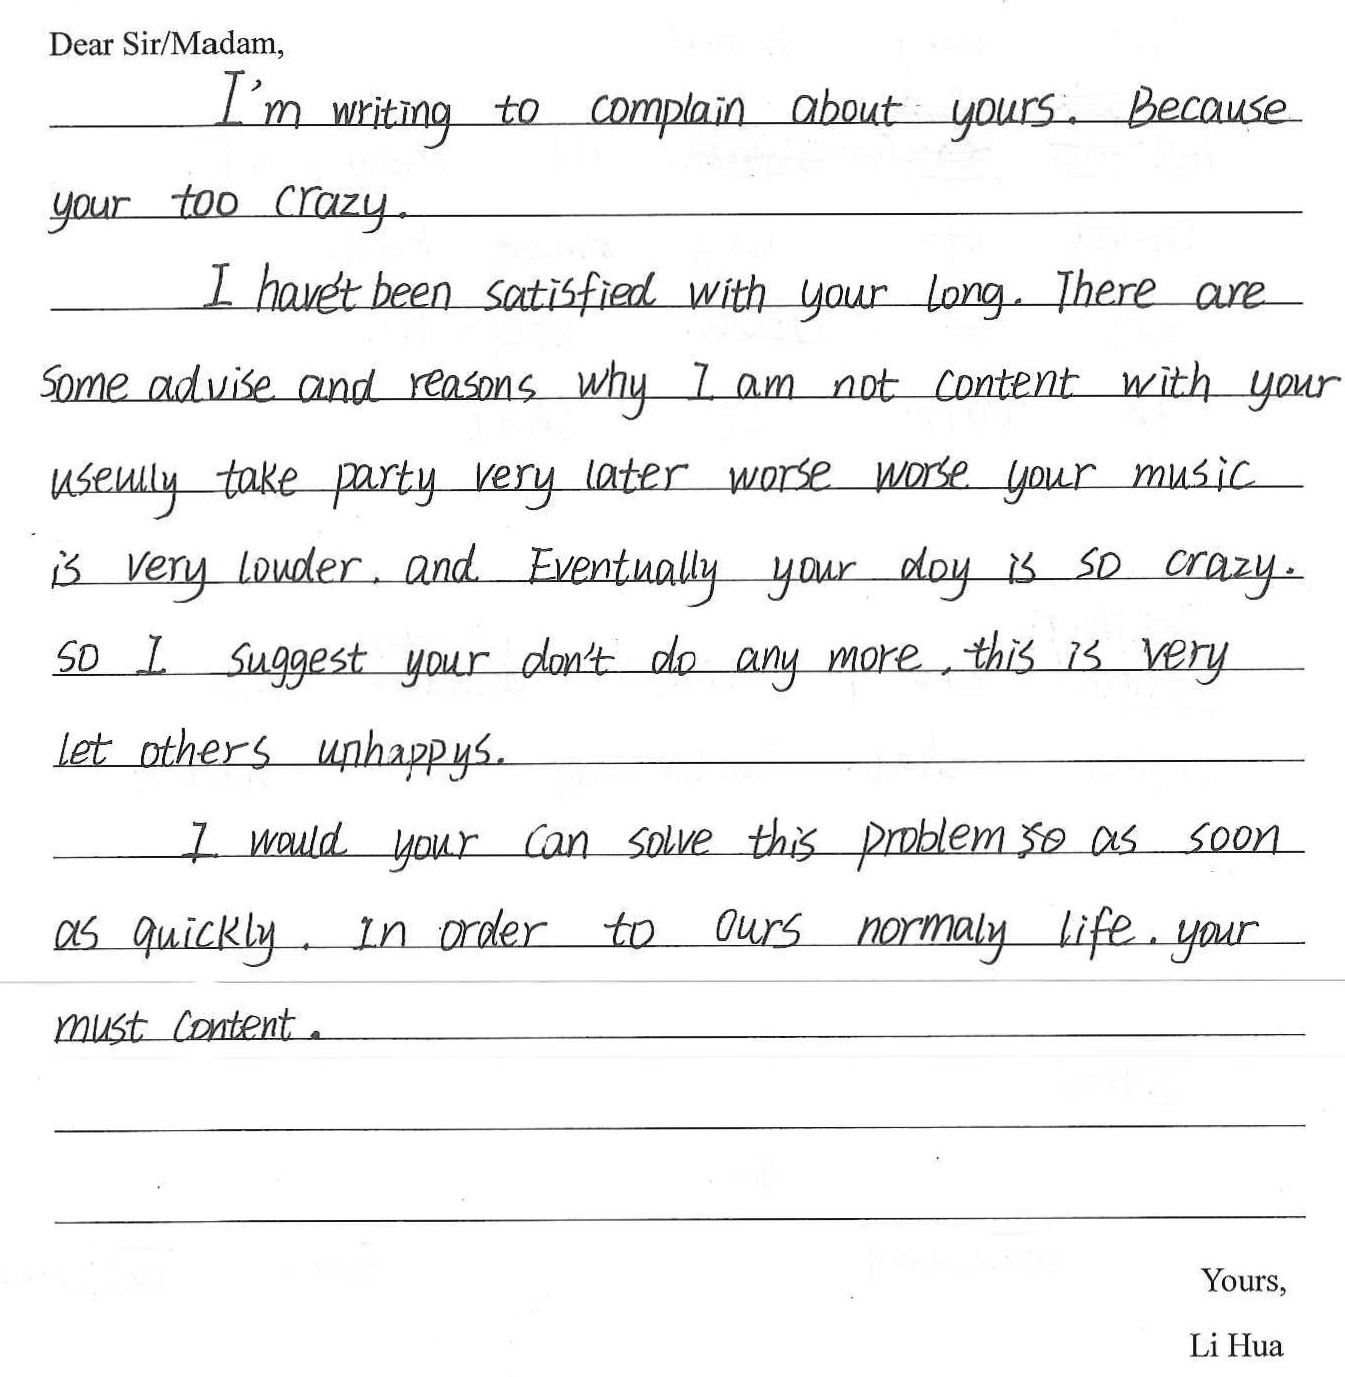 Dear Sir/Madam,
I'm writing to complain about yours. Because
your too crazy.
I have't been satisfied with your long. There are
some advise and reasons why I am not content with your
useully take party very later worse worse your music
is very louder. and Eventually your doy is so crazy.
so I suggest your don't do any more, this is very
let others unhappys.
I would your can solve this problem so as soon
as quickly. In order to ours normaly life. your
must content.
Yours,
Li Hua